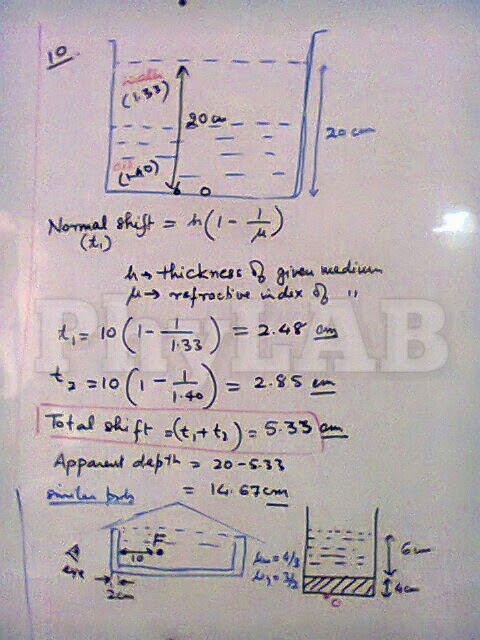 10
water
(1.33)
20cm
20cm
oil
(1.40)
O
Normal shift = h(1 - 1/μ)
(t₁)
h → thickness of given medium
μ → refractive index of "
t₁ = 10(1 - 1/1.33) = 2.48 cm
t₂ = 10(1 - 1/1.40) = 2.85 cm
Total shift = (t₁ + t₂) = 5.33 cm
Apparent depth = 20 - 5.33
= 14.67cm
similar prob
F
10
eye
2cm
μω = 4/3
μg = 3/2
6cm
4cm
O
PhyLAB